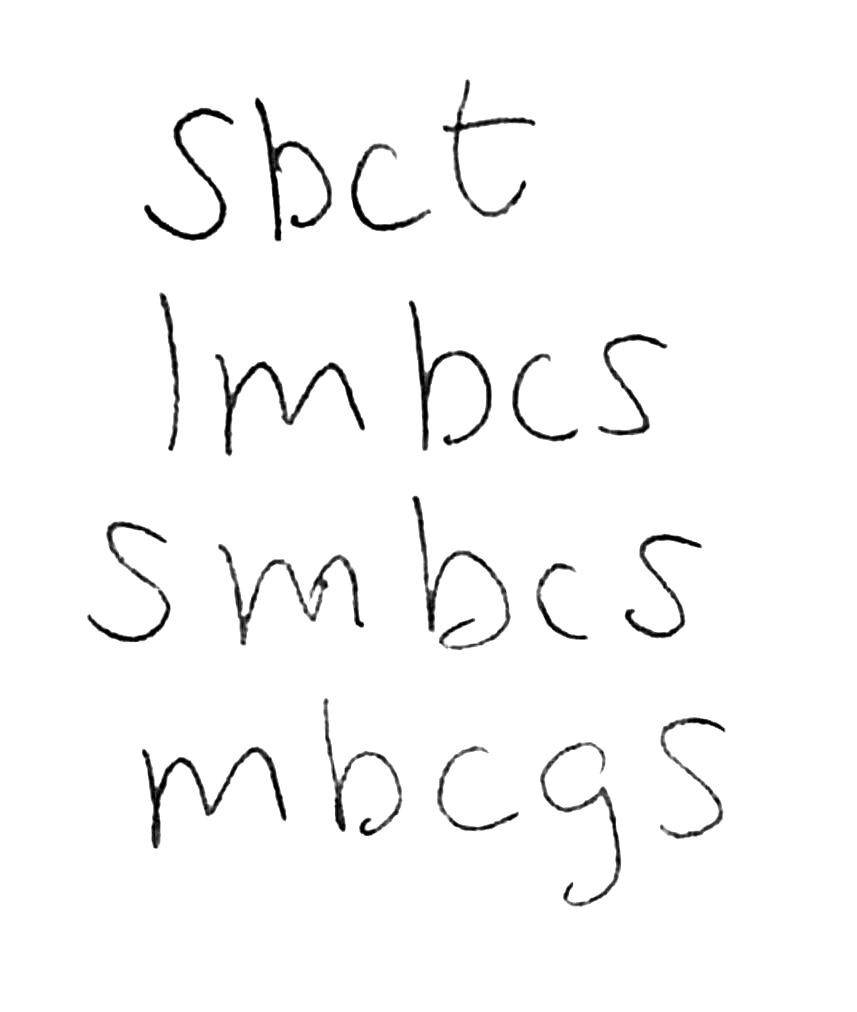 sbct
lmbcs
smbcs
mbcgs